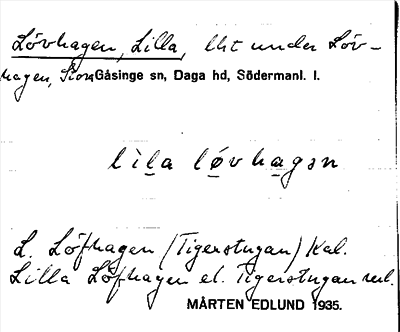 Lövhagen, Lilla, lht under Löv-
hagen, Stora Gåsinge sn, Daga hd, Södermanl. l.
lìla lø̀vhagən
L. Löfhagen (Tigerstugan) Kal.
Lilla Löfhagen el. Tigerstugan
MÅRTEN EDLUND 1935.